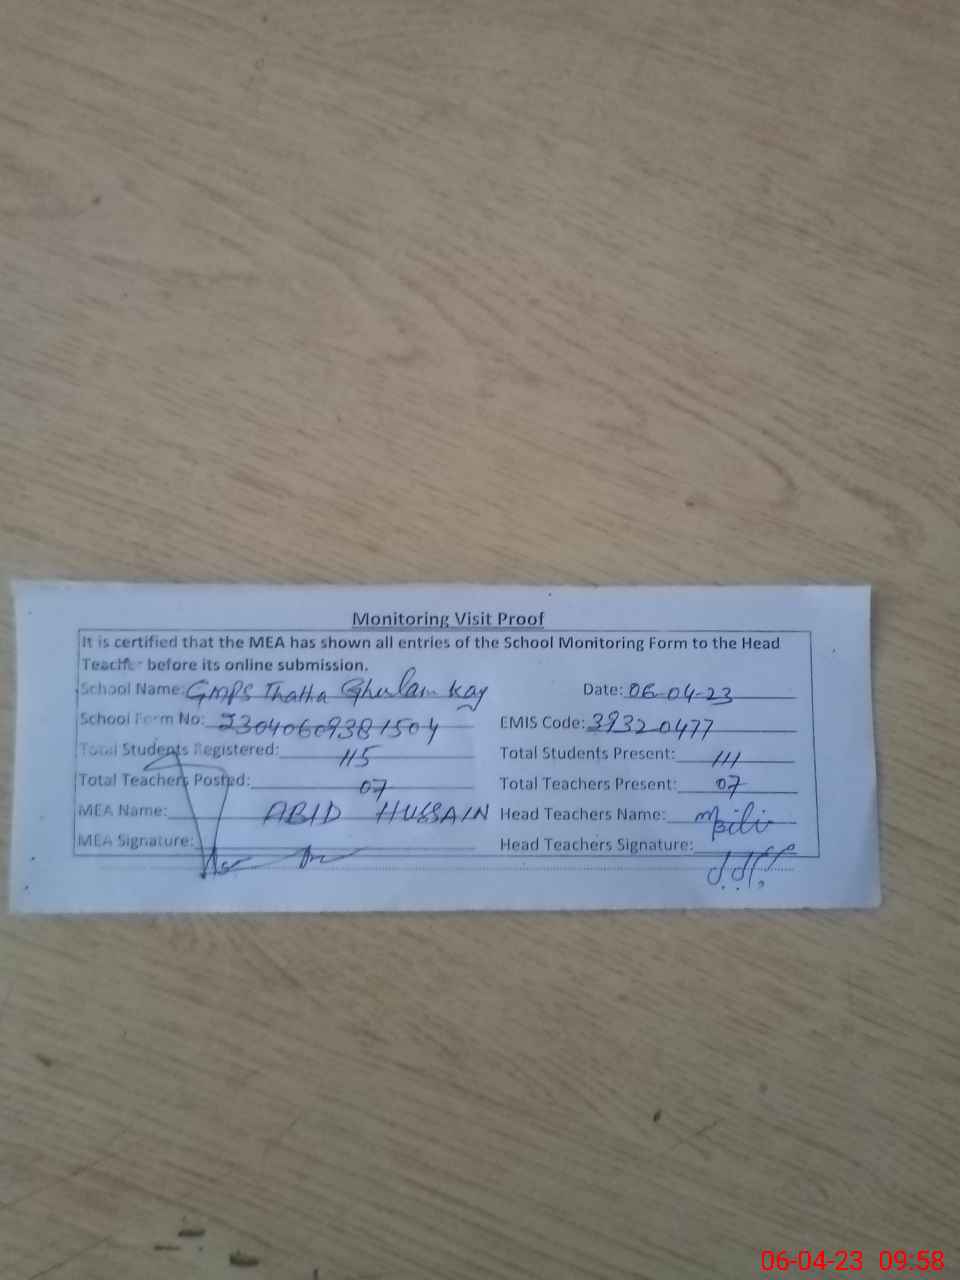 Monitoring Visit Proof
It is certified that the MEA has shown all entries of the School Monitoring Form to the Head
Teacher before its online submission.
School Name: GMPS Thatha Ghulam Kay Date: 06-04-23
School Form No: 23040609381504 EMIS Code: 39320477
Total Students Registered: 115 Total Students Present: 111
Total Teachers Posted: 07 Total Teachers Present: 07
MEA Name: ABID HUSSAIN Head Teachers Name:
MEA Signature: Head Teachers Signature:
06-04-23 09:58